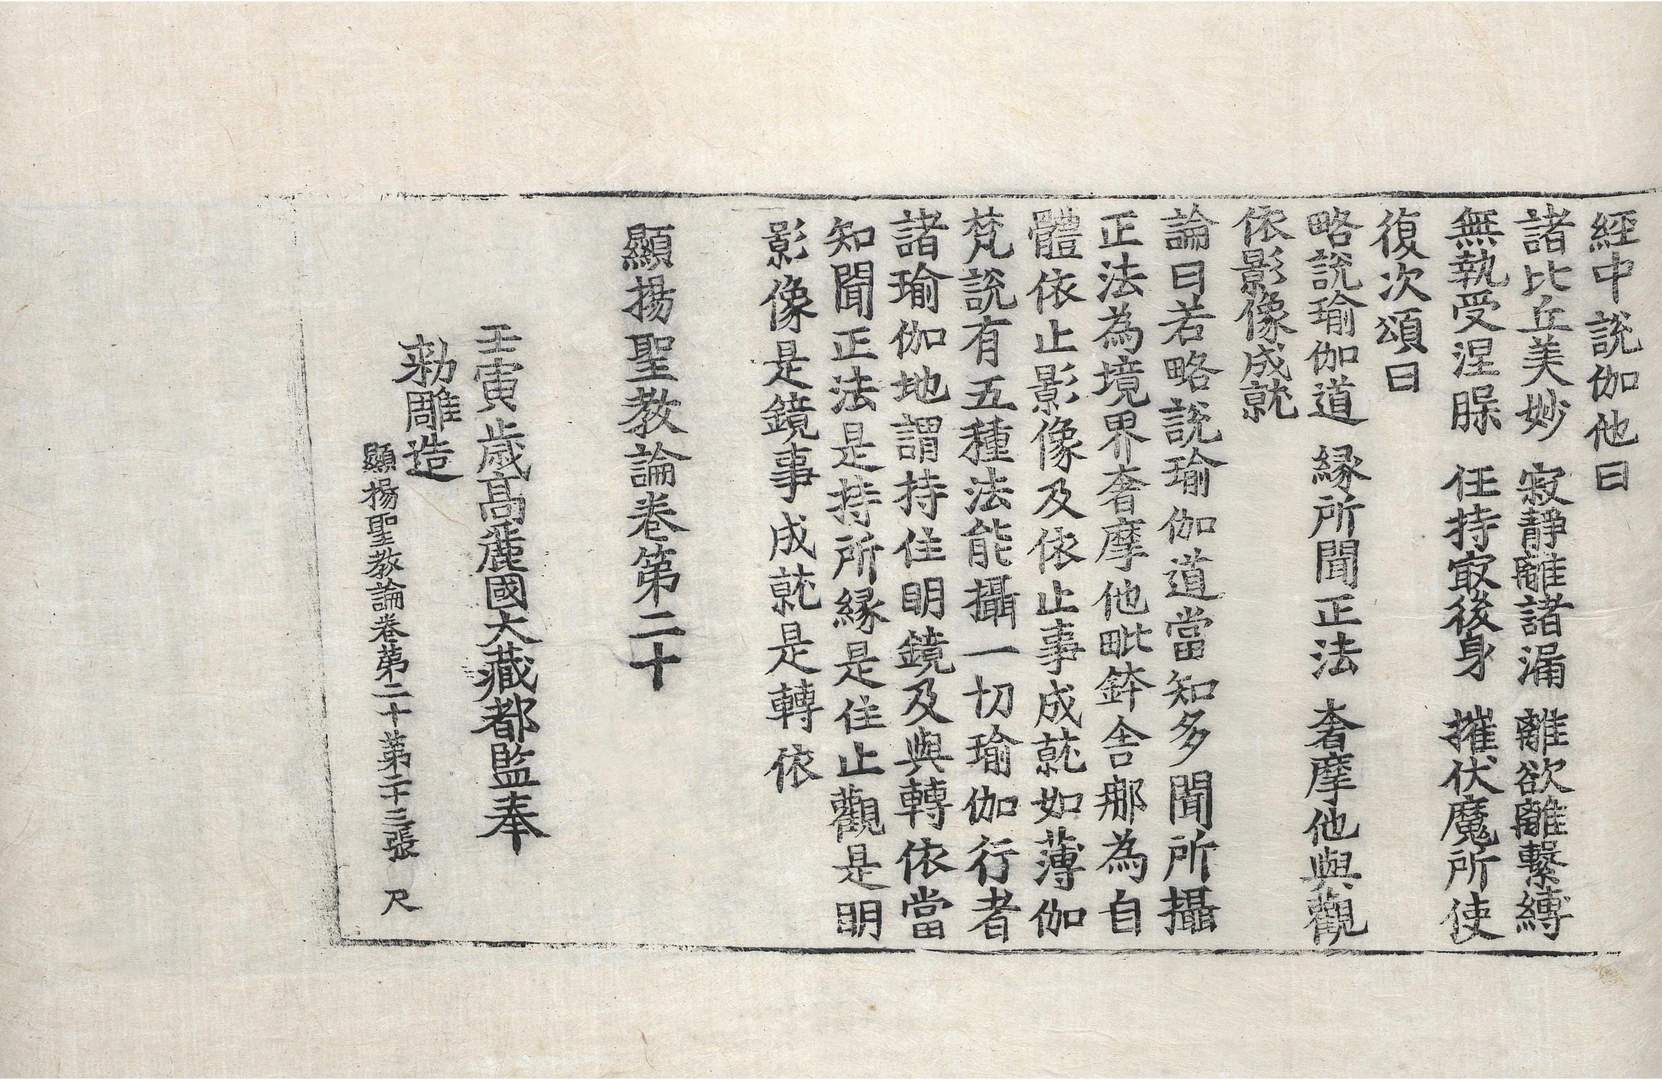 經中說伽他曰
諸比丘美妙 寂靜離諸漏 離欲離繫縛
無執受涅槃 任持冣後身 摧伏魔所使
復次頌曰
略說瑜伽道 縁所聞正法 奢摩他與觀
依影像成就
論曰若略說瑜伽道當知多聞所攝
正法為境界奢摩他毗鉢舍那為自
體依止影像及依止事成就如薄伽
梵說有五種法能攝一切瑜伽行者
諸瑜伽地謂持住明鏡及與轉依當
知聞正法是持所縁是住止觀是明
影像是鏡事成就是轉依
顯揚聖教論卷第二十
壬寅歲高麗國大藏都監奉
勑雕造
顯揚聖教論卷第二十 第二十三張 尺